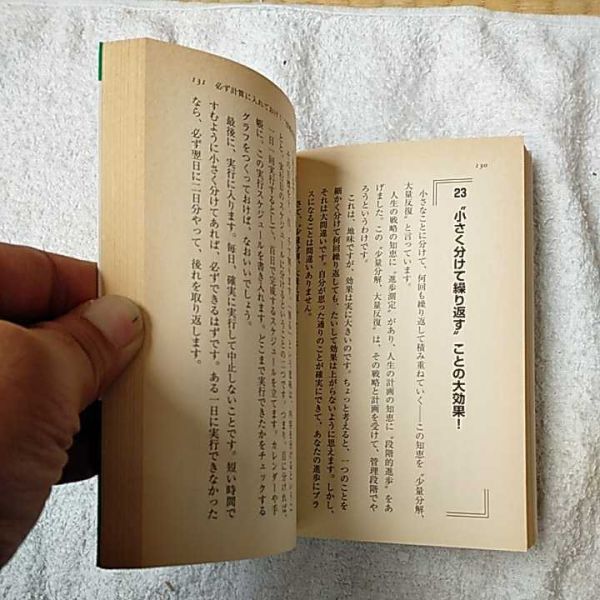 130
23 〝小さく分けて繰り返す〟ことの大効果!
小さなことに分けて、何回も繰り返して積み重ねていく——この知恵を〝少量分解、
大量反復〟と言っています。
人生の戦略の知恵に〝進歩測定〟があり、人生の計画の知恵に〝段階的進歩〟をあ
げました。この〝少量分解、大量反復〟は、その戦略と計画を受けて、管理段階でや
ろうというわけです。
これは、地味ですが、効果は実に大きいのです。ちょっと考えると、一つのことを
細かく分けて何回繰り返しても、たいして効果は上がらないように思います。しかし、
それは大間違いです。自分が思った通りのことが確実にできて、あなたの進歩にプラ
スになることは間違いありません。
131 必ず計算に入れておけ!
一日一回実行するとして、百日で完成するスケジュールを立てます。カレンダーや手
帳に、この実行スケジュールを書き入れます。どこまで実行できたかをチェックする
グラフをつくっておけば、なおいいでしょう。
最後に、実行に入ります。毎日、確実に実行して中止しないことです。短い時間で
すむように小さく分けてあれば、必ずできるはずです。ある一日に実行できなかった
なら、必ず翌日に二日分やって、後れを取り返します。